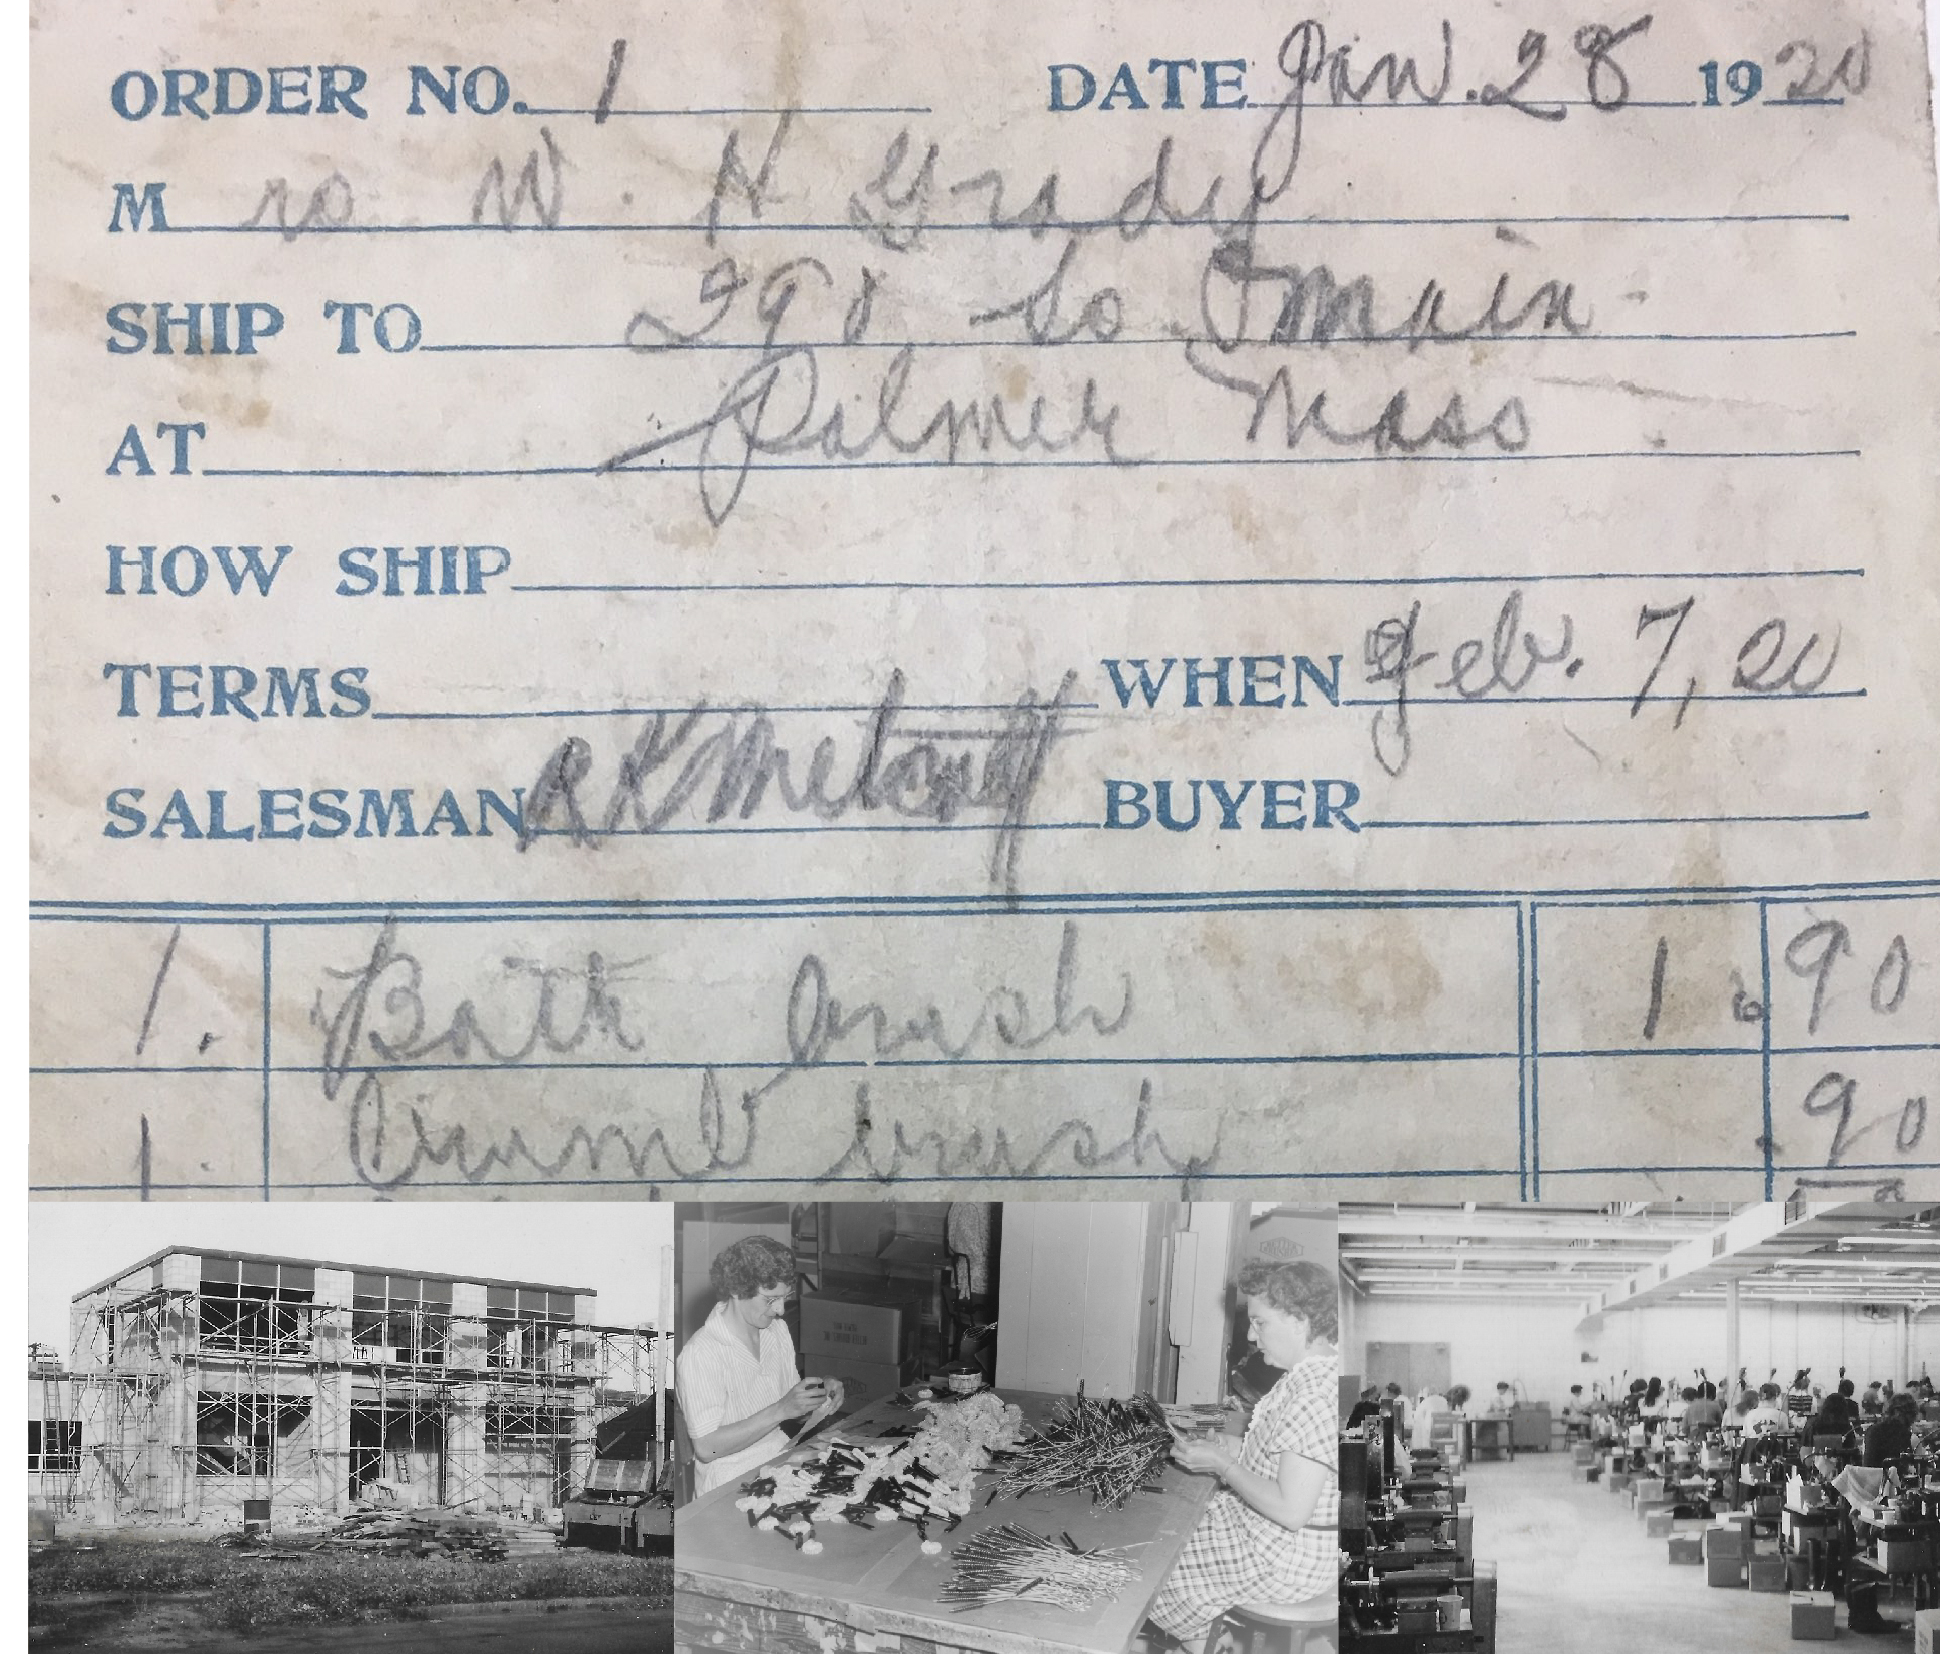 ORDER NO. 1 DATE Jan. 28 1920
Mrs W. H Grady
SHIP TO 298 So. Main
AT Palmer Mass
HOW SHIP
TERMS WHEN Feb. 7, 20
SALESMAN R K BUYER
1. Bath brush 1.90
1. Crumb brush .90